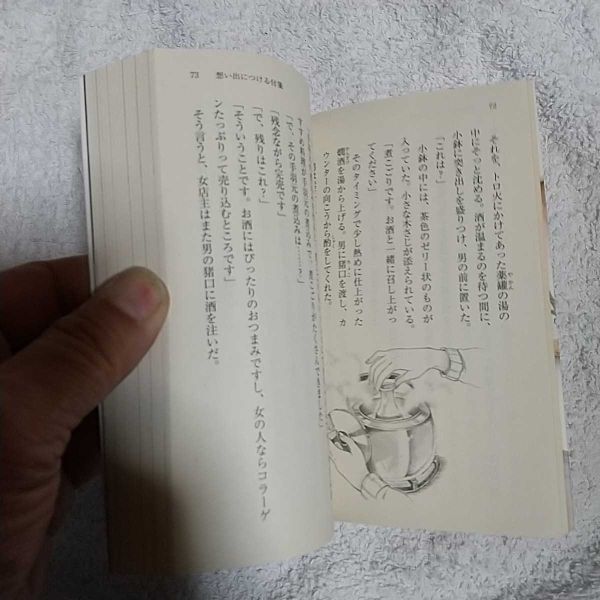 それを、トロ火にかけてあった薬罐の湯の
中にそっと沈める。酒が温まるのを待つ間に、
小鉢に突き出しを盛りつけ、男の前に置いた。
「これは？」
小鉢の中には、茶色のゼリー状のものが
入っていた。小さな木さじが添えられている。
「煮こごりです。お酒と一緒に召し上がっ
てください」
そのタイミングで少し熱めに仕上がった
燗酒を湯から上げる。男に猪口を渡し、カ
ウンターの向こうから酌をしてくれた。
73 想い出につける付箋
すすめ料理が手羽元の煮込みで、煮こごりがたくさんできました」
「で、その手羽元の煮込みは……？」
「残念ながら完売です」
「で、残りはこれ？」
「そういうことです。お酒にはぴったりのおつまみですし、女の人ならコラーゲ
ンたっぷりって売り込むところです」
そう言うと、女店主はまた男の猪口に酒を注いだ。